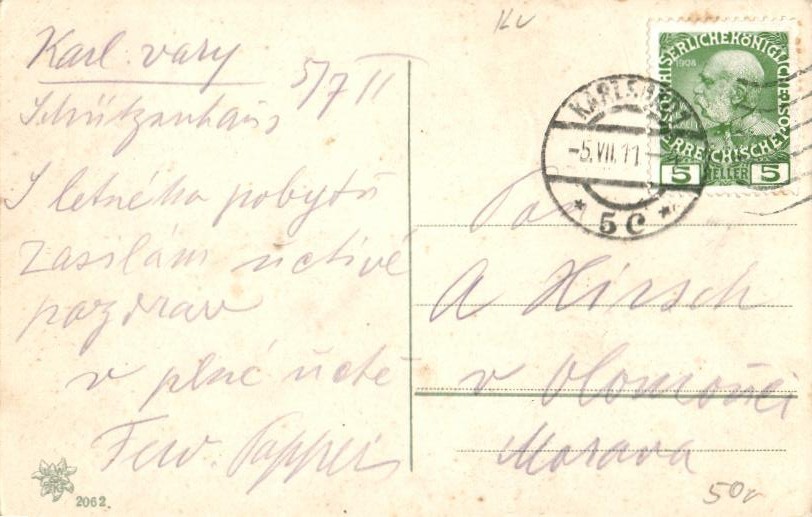 Kv
Karl. vary
5/7 11
Schützenhaus
S letného pobytu
zasílám uctivé
pozdrav
v plné úctě
Ferd.
2062.
KARLSBAD
-5.VII.11
* 5c *
KAISERLICHEKÖNIGLICHE
ÖSTERREICHISCHE POST
1908
5 HELLER 5
Pan
A Hirsch
v Olomouci
Morava
50v